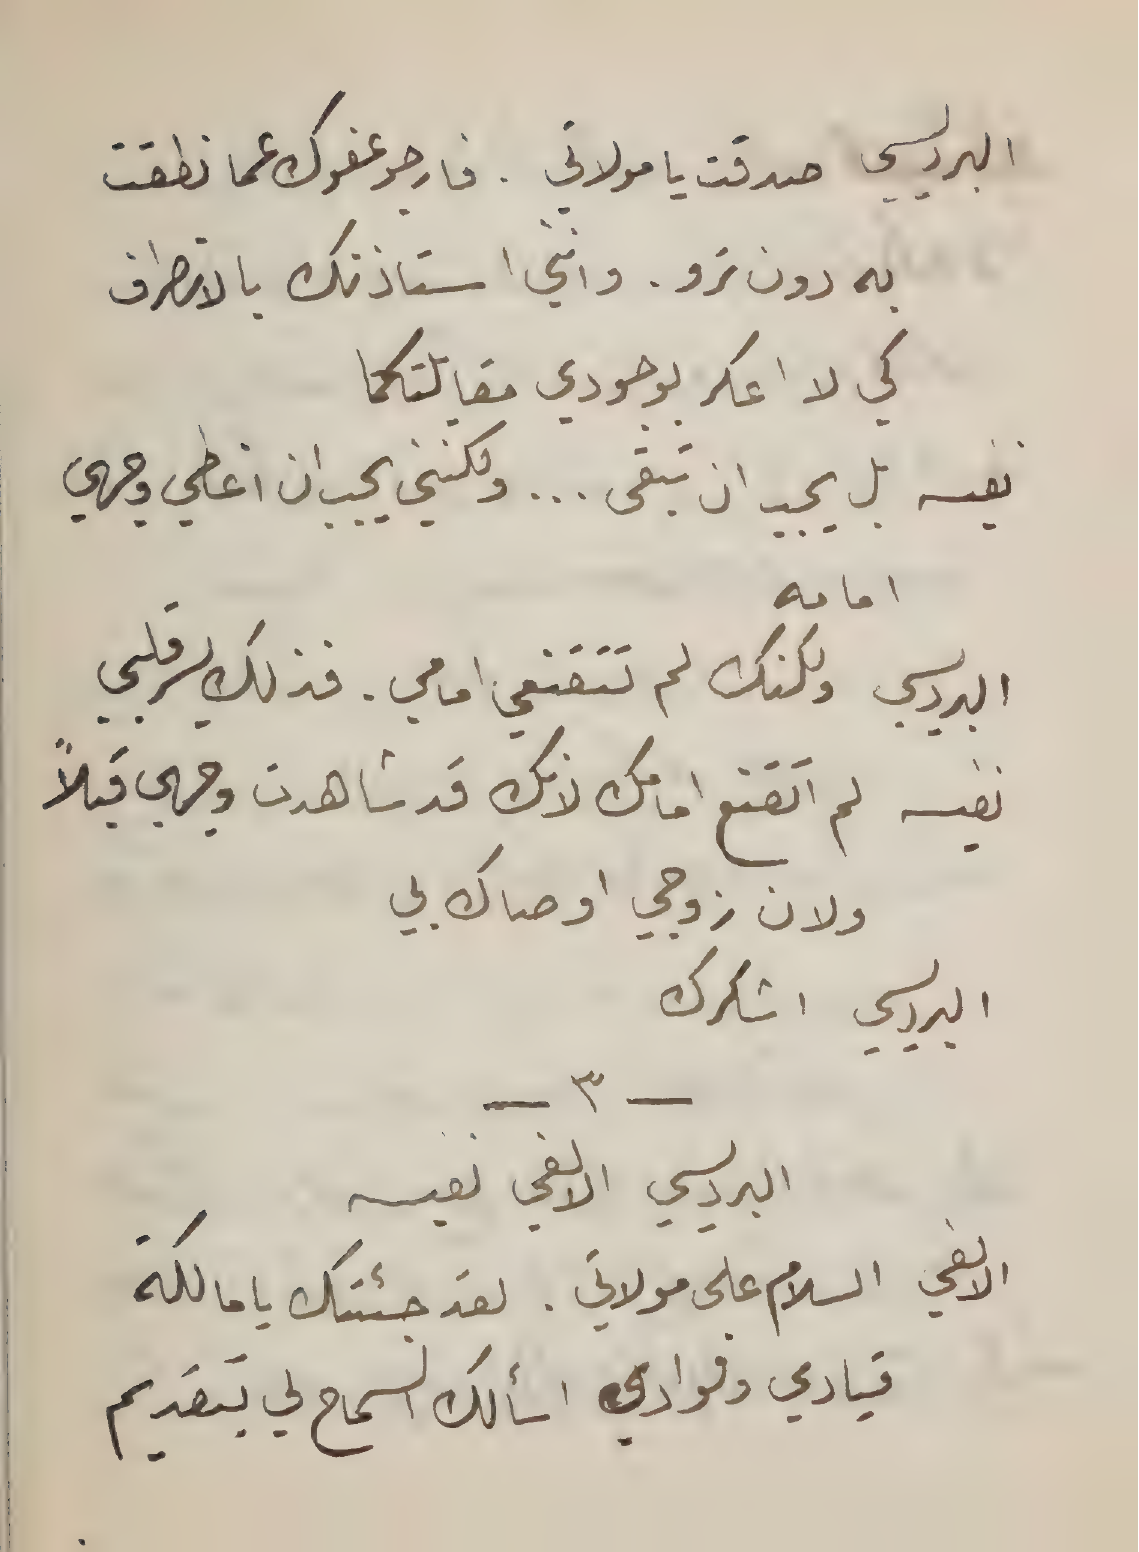 البرديسي صدقت يا مولاتي . فارجو عفوك عما نطقت
به دون ترو . وانني استاذنك بالانصراف
كي لا اعكر بوجودي مقابلتكما
نفيسه بل يجب ان تبقى ... ولكنني يجب ان اغطي وجهي
امامه
البرديسي ولكنك لم تتقنعي امامي . فذلك يسر قلبي
نفيسه لم اتقنع امامك لانك قد شاهدت وجهي قبلاً
ولان زوجي اوصاك بي
البرديسي اشكرك
— ٣ —
البرديسي الالفي نفيسه
الالفي السلام على مولاتي . لقد جئتك يا مالكة
قيادي وفوادي اسألك السماح لي بتقديم